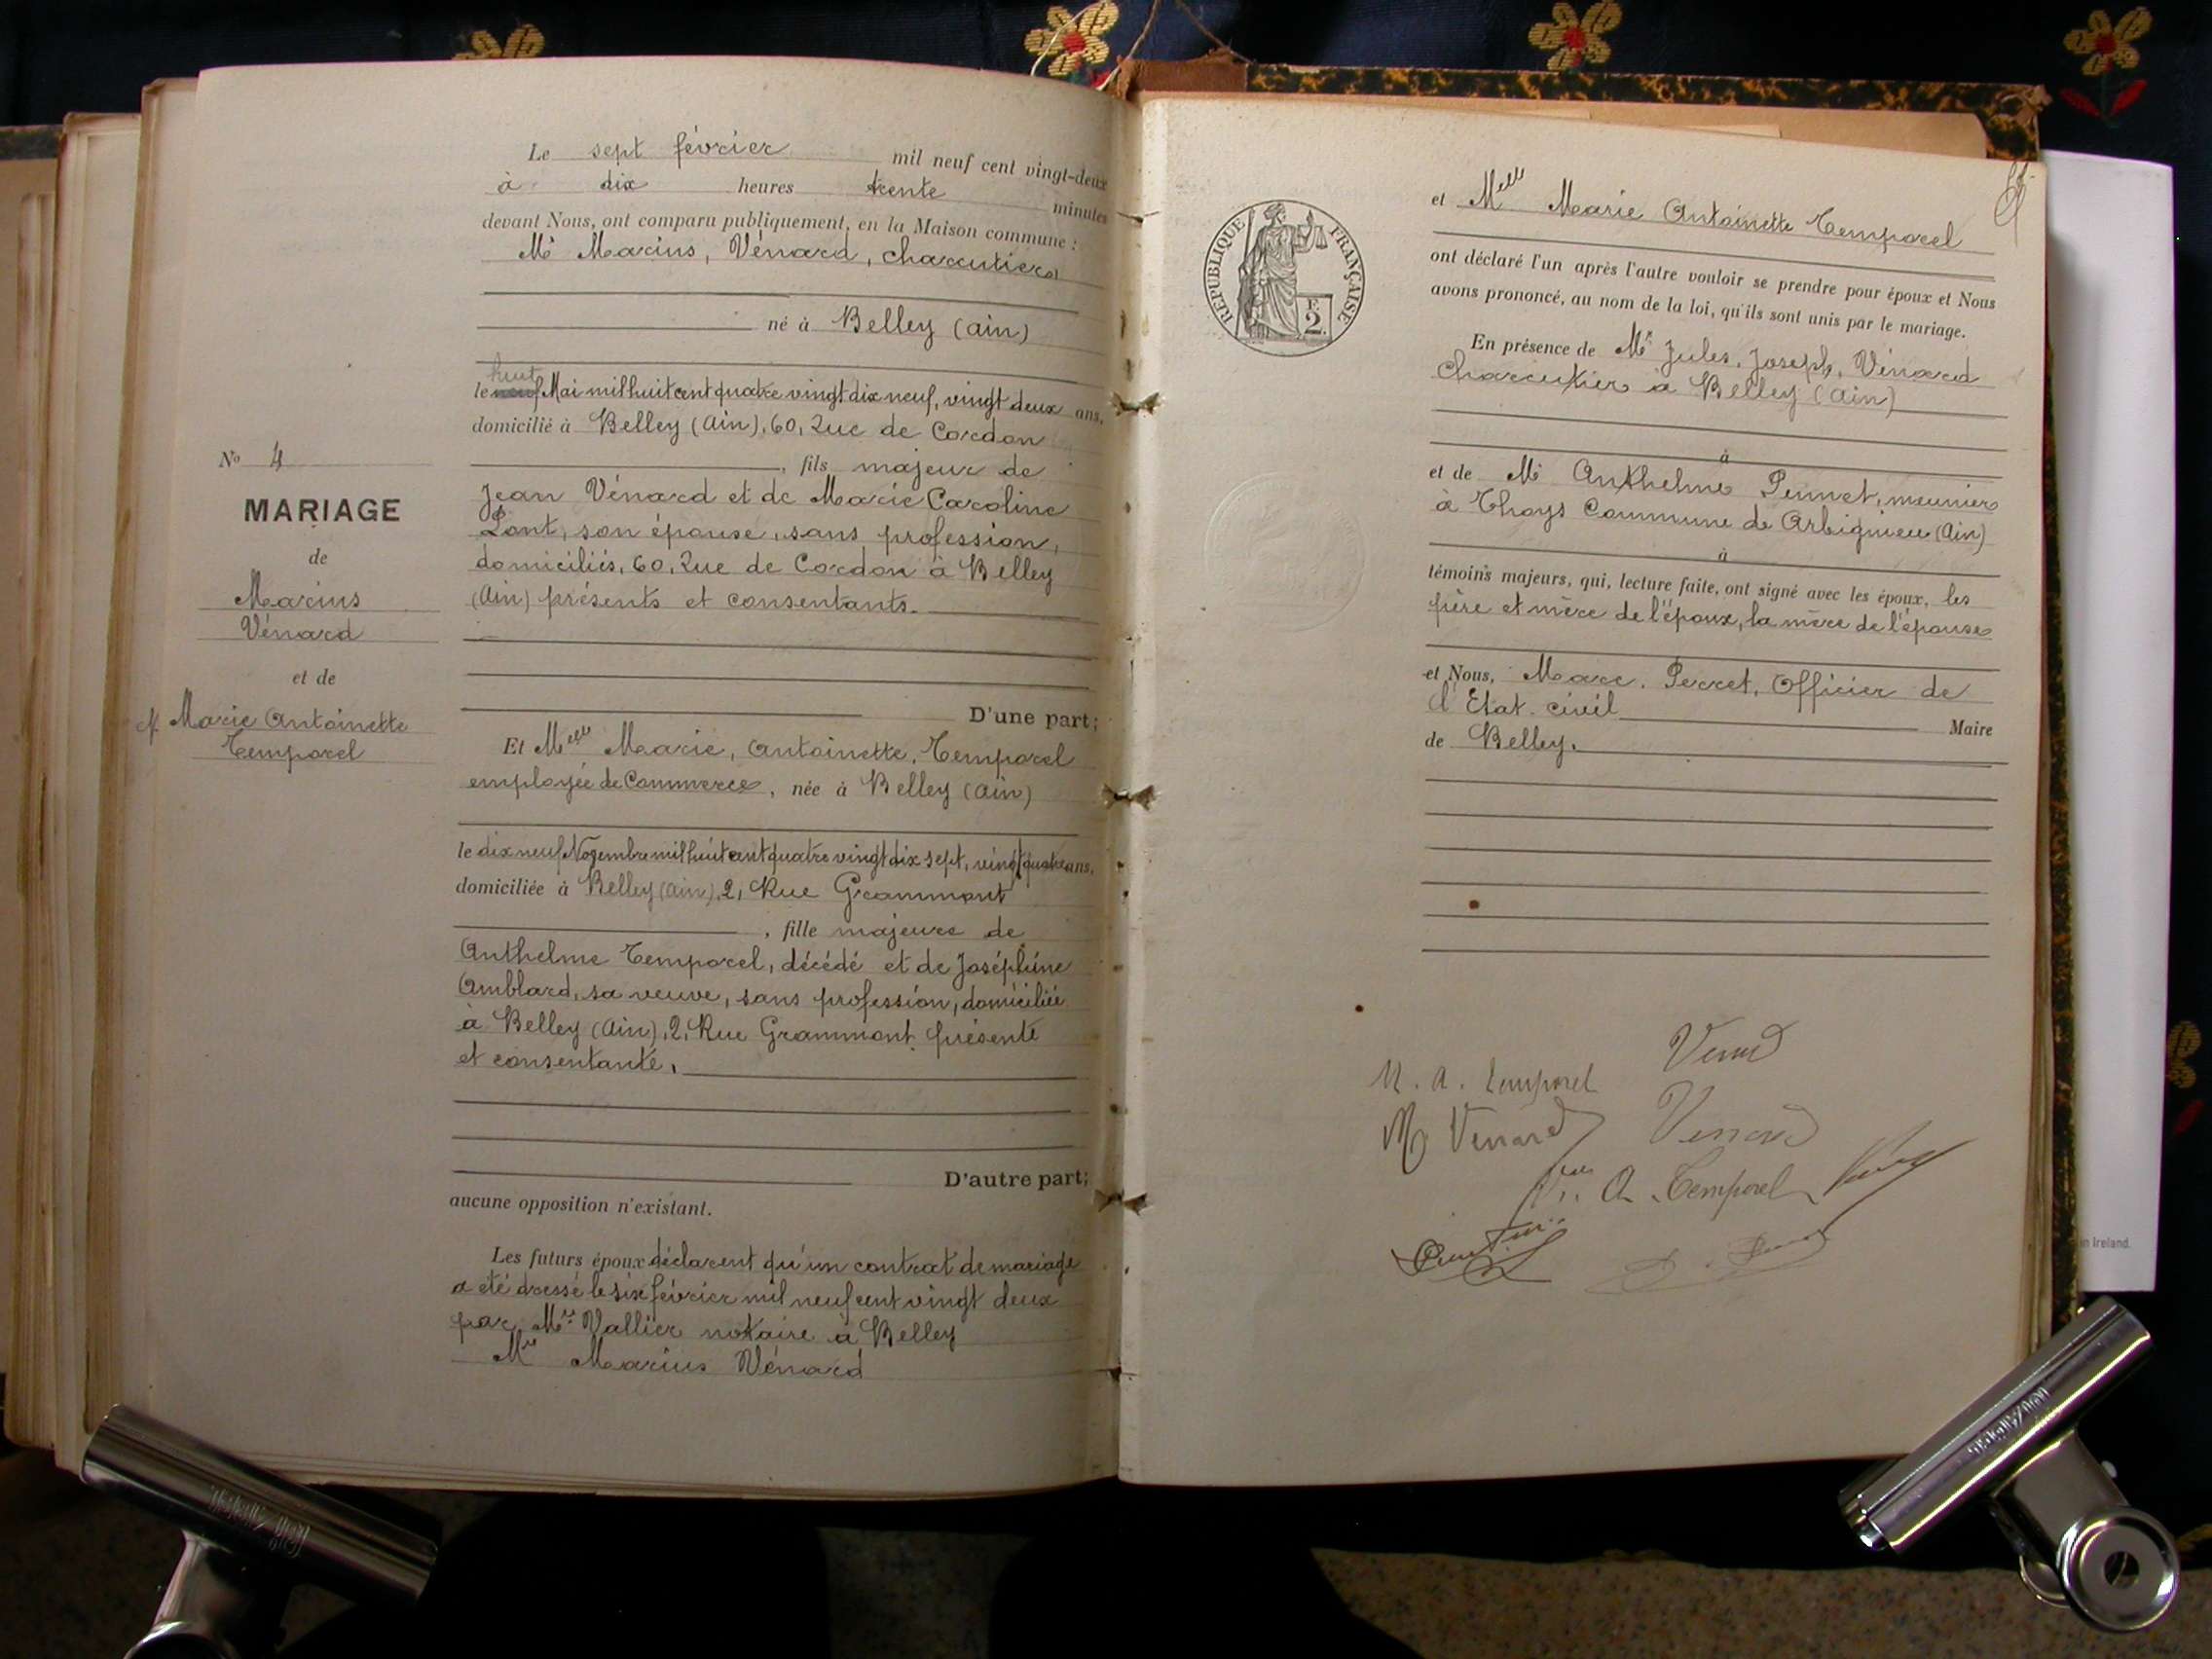 Le sept février mil neuf cent vingt-deux
à dix heures trente minutes
devant Nous, ont comparu publiquement, en la Maison commune :
Mr Marius, Vénard, charcutier
né à Belley (Ain)
huit
le neuf Mai mil huit cent quatre vingt dix neuf, vingt deux ans,
domicilié à Belley (Ain), 60, Rue de Cordon
, fils majeur de
Jean Vénard et de Marie Caroline
Pont, son épouse, sans profession,
domiciliés, 60, Rue de Cordon à Belley
(Ain) présents et consentants.
D'une part;
No 4
MARIAGE
de
Marius
Vénard
et de
Marie Antoinette
Temporel
Et Melle Marie, Antoinette, Temporel
employée de Commerce, née à Belley (Ain)
le dix neuf Novembre mil huit cent quatre vingt dix sept, vingt quatre ans,
domiciliée à Belley (Ain), 2, Rue Grammont
, fille majeure de
Anthelme Temporel, décédé et de Joséphine
Amblard, sa veuve, sans profession, domiciliée
à Belley (Ain), 2, Rue Grammont présente
et consentante,
D'autre part;
aucune opposition n'existant.
Les futurs époux déclarent qu'un contrat de mariage
a été dressé le six février mil neuf cent vingt deux
par Me Vallier notaire à Belley
Mr Marius Vénard
RÉPUBLIQUE FRANÇAISE
2F.
et Melle Marie Antoinette Temporel
ont déclaré l'un après l'autre vouloir se prendre pour époux et Nous
avons prononcé, au nom de la loi, qu'ils sont unis par le mariage.
En présence de Mr Jules, Joseph, Vénard
Charcutier à Belley (Ain)
à
et de Mr Anthelme Pennet, meunier
à Thoys Commune de Arbignieu (Ain)
à
témoins majeurs, qui, lecture faite, ont signé avec les époux, les
père et mère de l'époux, la mère de l'épouse
et Nous, Marc, Perret, Officier de
l'Etat civil Maire
de Belley.
Venard
M. A. Temporel
M Venard Venard
Vve A. Temporel
in Ireland.